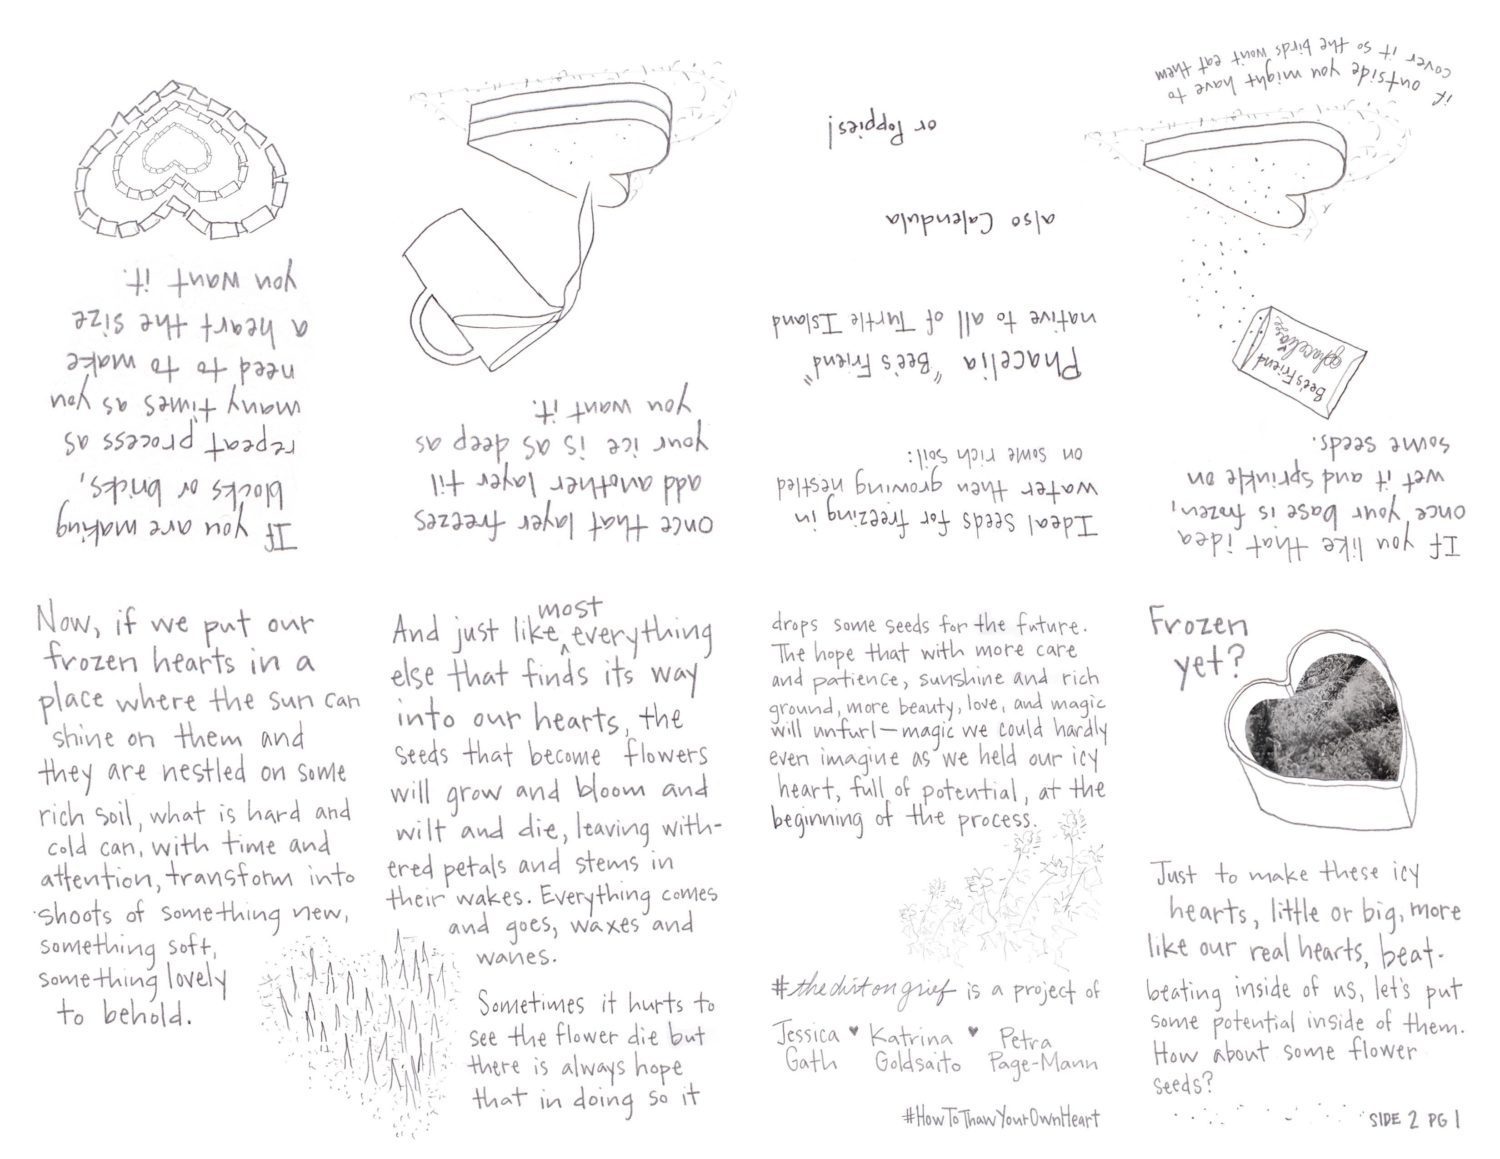 Frozen
yet?
Just to make these icy
hearts, little or big, more
like our real hearts, beat-
beating inside of us, let's put
some potential inside of them.
How about some flower
seeds?
SIDE 2 PG 1
If you like that idea
once your base is frozen,
wet it and sprinkle on
some seeds.
Bee's Friend
Phacelia
if outside you might have to
cover it so the birds won't eat them
Ideal seeds for freezing in
water then growing nestled
on some rich soil:
Phacelia "Bee's Friend"
native to all of Turtle Island
also Calendula
or Poppies!
once that layer freezes
add another layer til
your ice is as deep as
you want it.
If you are making
blocks or bricks,
repeat process as
many times as you
need to to make
a heart the size
you want it.
Now, if we put our
frozen hearts in a
place where the sun can
shine on them and
they are nestled on some
rich soil, what is hard and
cold can, with time and
attention, transform into
shoots of something new,
something soft,
something lovely
to behold.
And just like most everything
else that finds its way
into our hearts, the
seeds that become flowers
will grow and bloom and
wilt and die, leaving with-
ered petals and stems in
their wakes. Everything comes
and goes, waxes and
wanes.
Sometimes it hurts to
see the flower die but
there is always hope
that in doing so it
drops some seeds for the future.
The hope that with more care
and patience, sunshine and rich
ground, more beauty, love, and magic
will unfurl—magic we could hardly
even imagine as we held our icy
heart, full of potential, at the
beginning of the process.
#thedirtongrief is a project of
Jessica ♥ Katrina ♥ Petra
Gath Goldsaito Page-Mann
#HowToThawYourOwnHeart